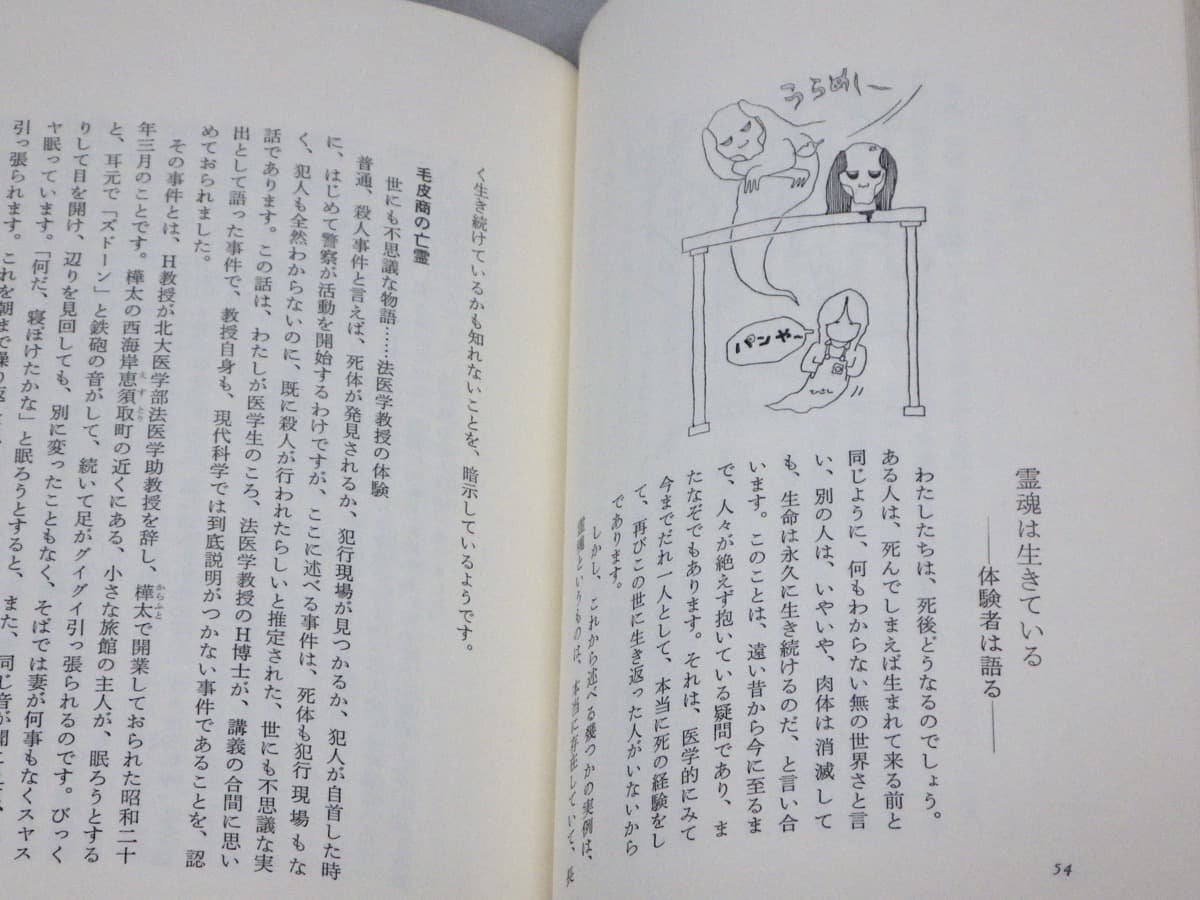 うらめしー
パンやー
ひさし
霊魂は生きている
――体験者は語る――
わたしたちは、死後どうなるのでしょう。
ある人は、死んでしまえば生まれて来る前と
同じように、何もわからない無の世界さと言
い、別の人は、いやいや、肉体は消滅して
も、生命は永久に生き続けるのだ、と言い合
います。このことは、遠い昔から今に至るま
で、人々が絶えず抱いている疑問であり、ま
たなぞでもあります。それは、医学的にみて
今までだれ一人として、本当に死の経験をし
て、再びこの世に生き返った人がいないから
であります。
しかし、これから述べる幾つかの実例は、
霊魂というものは、本当に存在していて、長
54
く生き続けているかも知れないことを、暗示しているようです。
毛皮商の亡霊
世にも不思議な物語……法医学教授の体験
普通、殺人事件と言えば、死体が発見されるか、犯行現場が見つかるか、犯人が自首した時
に、はじめて警察が活動を開始するわけですが、ここに述べる事件は、死体も犯行現場もな
く、犯人も全然わからないのに、既に殺人が行われたらしいと推定された、世にも不思議な実
話であります。この話は、わたしが医学生のころ、法医学教授のH博士が、講義の合間に思い
出として語った事件で、教授自身も、現代科学では到底説明がつかない事件であることを、認
めておられました。
その事件とは、H教授が北大医学部法医学助教授を辞し、樺太からふとで開業しておられた昭和二十
年三月のことです。樺太の西海岸恵須取えすとり町の近くにある、小さな旅館の主人が、眠ろうとする
と、耳元で「ズドーン」と鉄砲の音がして、続いて足がグイグイ引っ張られるのです。びっく
りして目を開け、辺りを見回しても、別に変ったこともなく、そばでは妻が何事もなくスヤス
ヤ眠っています。「何だ、寝ぼけたかな」と眠ろうとすると、また、同じ音が聞こ
引っ張られます。これを朝まで繰り返